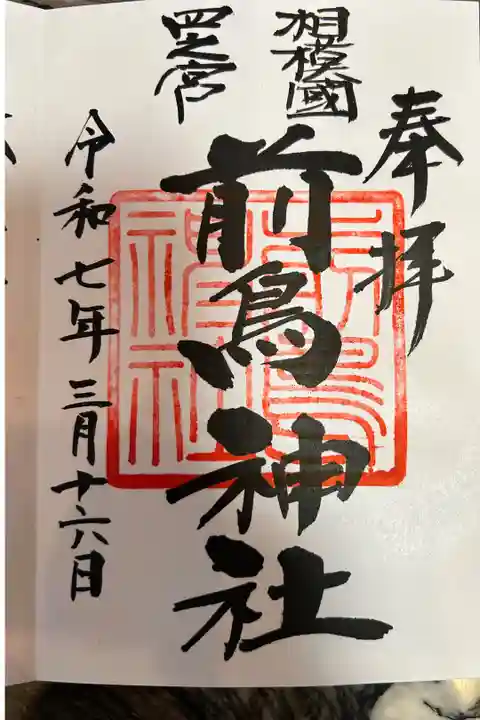 奉拝
相模國
四之宮
前鳥神社
令和七年三月十六日
前鳥神社